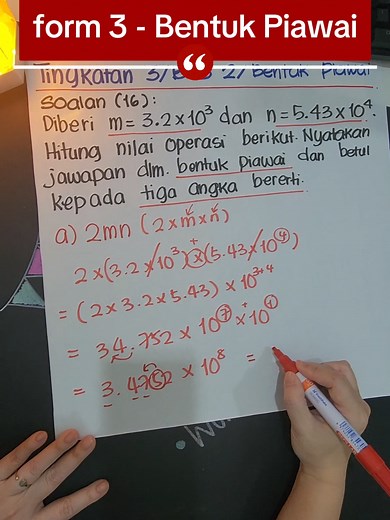 form 3 - Bentuk Piawai
Tingkatan 3/ 2/ Bentuk Piawai
Soalan (16):
Diberi m=3.2×10³ dan n=5.43×10⁴.
Hitung nilai operasi berikut. Nyatakan
jawapan dlm. bentuk piawai dan betul
kepada tiga angka bererti.
a) 2mn (2×m×n)
2×(3.2×10³)×(5.43×10⁴)
= (2×3.2×5.43) × 10³⁺⁴
= 34.752 × 10⁷ × 10¹
= 3.4752 × 10⁸ =